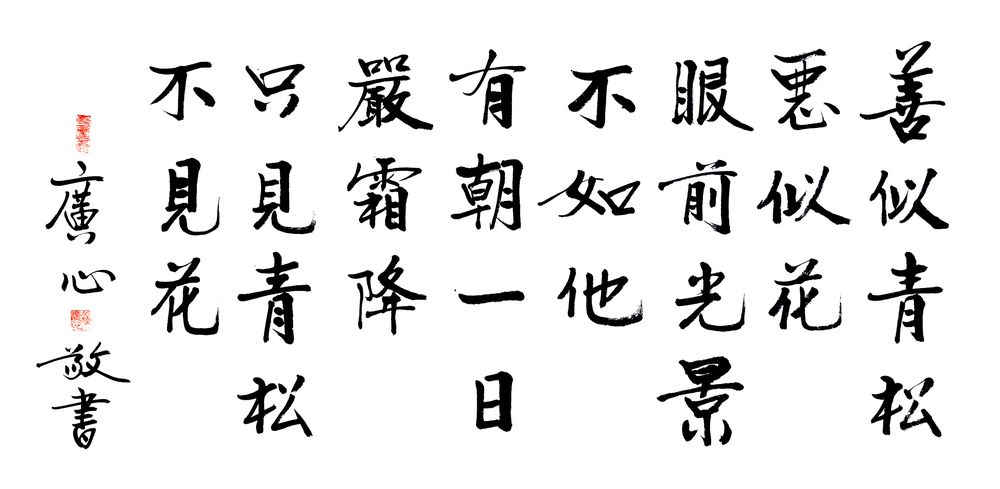 善似青松
惡似花
眼前光景
不如他
有朝一日
嚴霜降
只見青松
不見花
廣心敬書